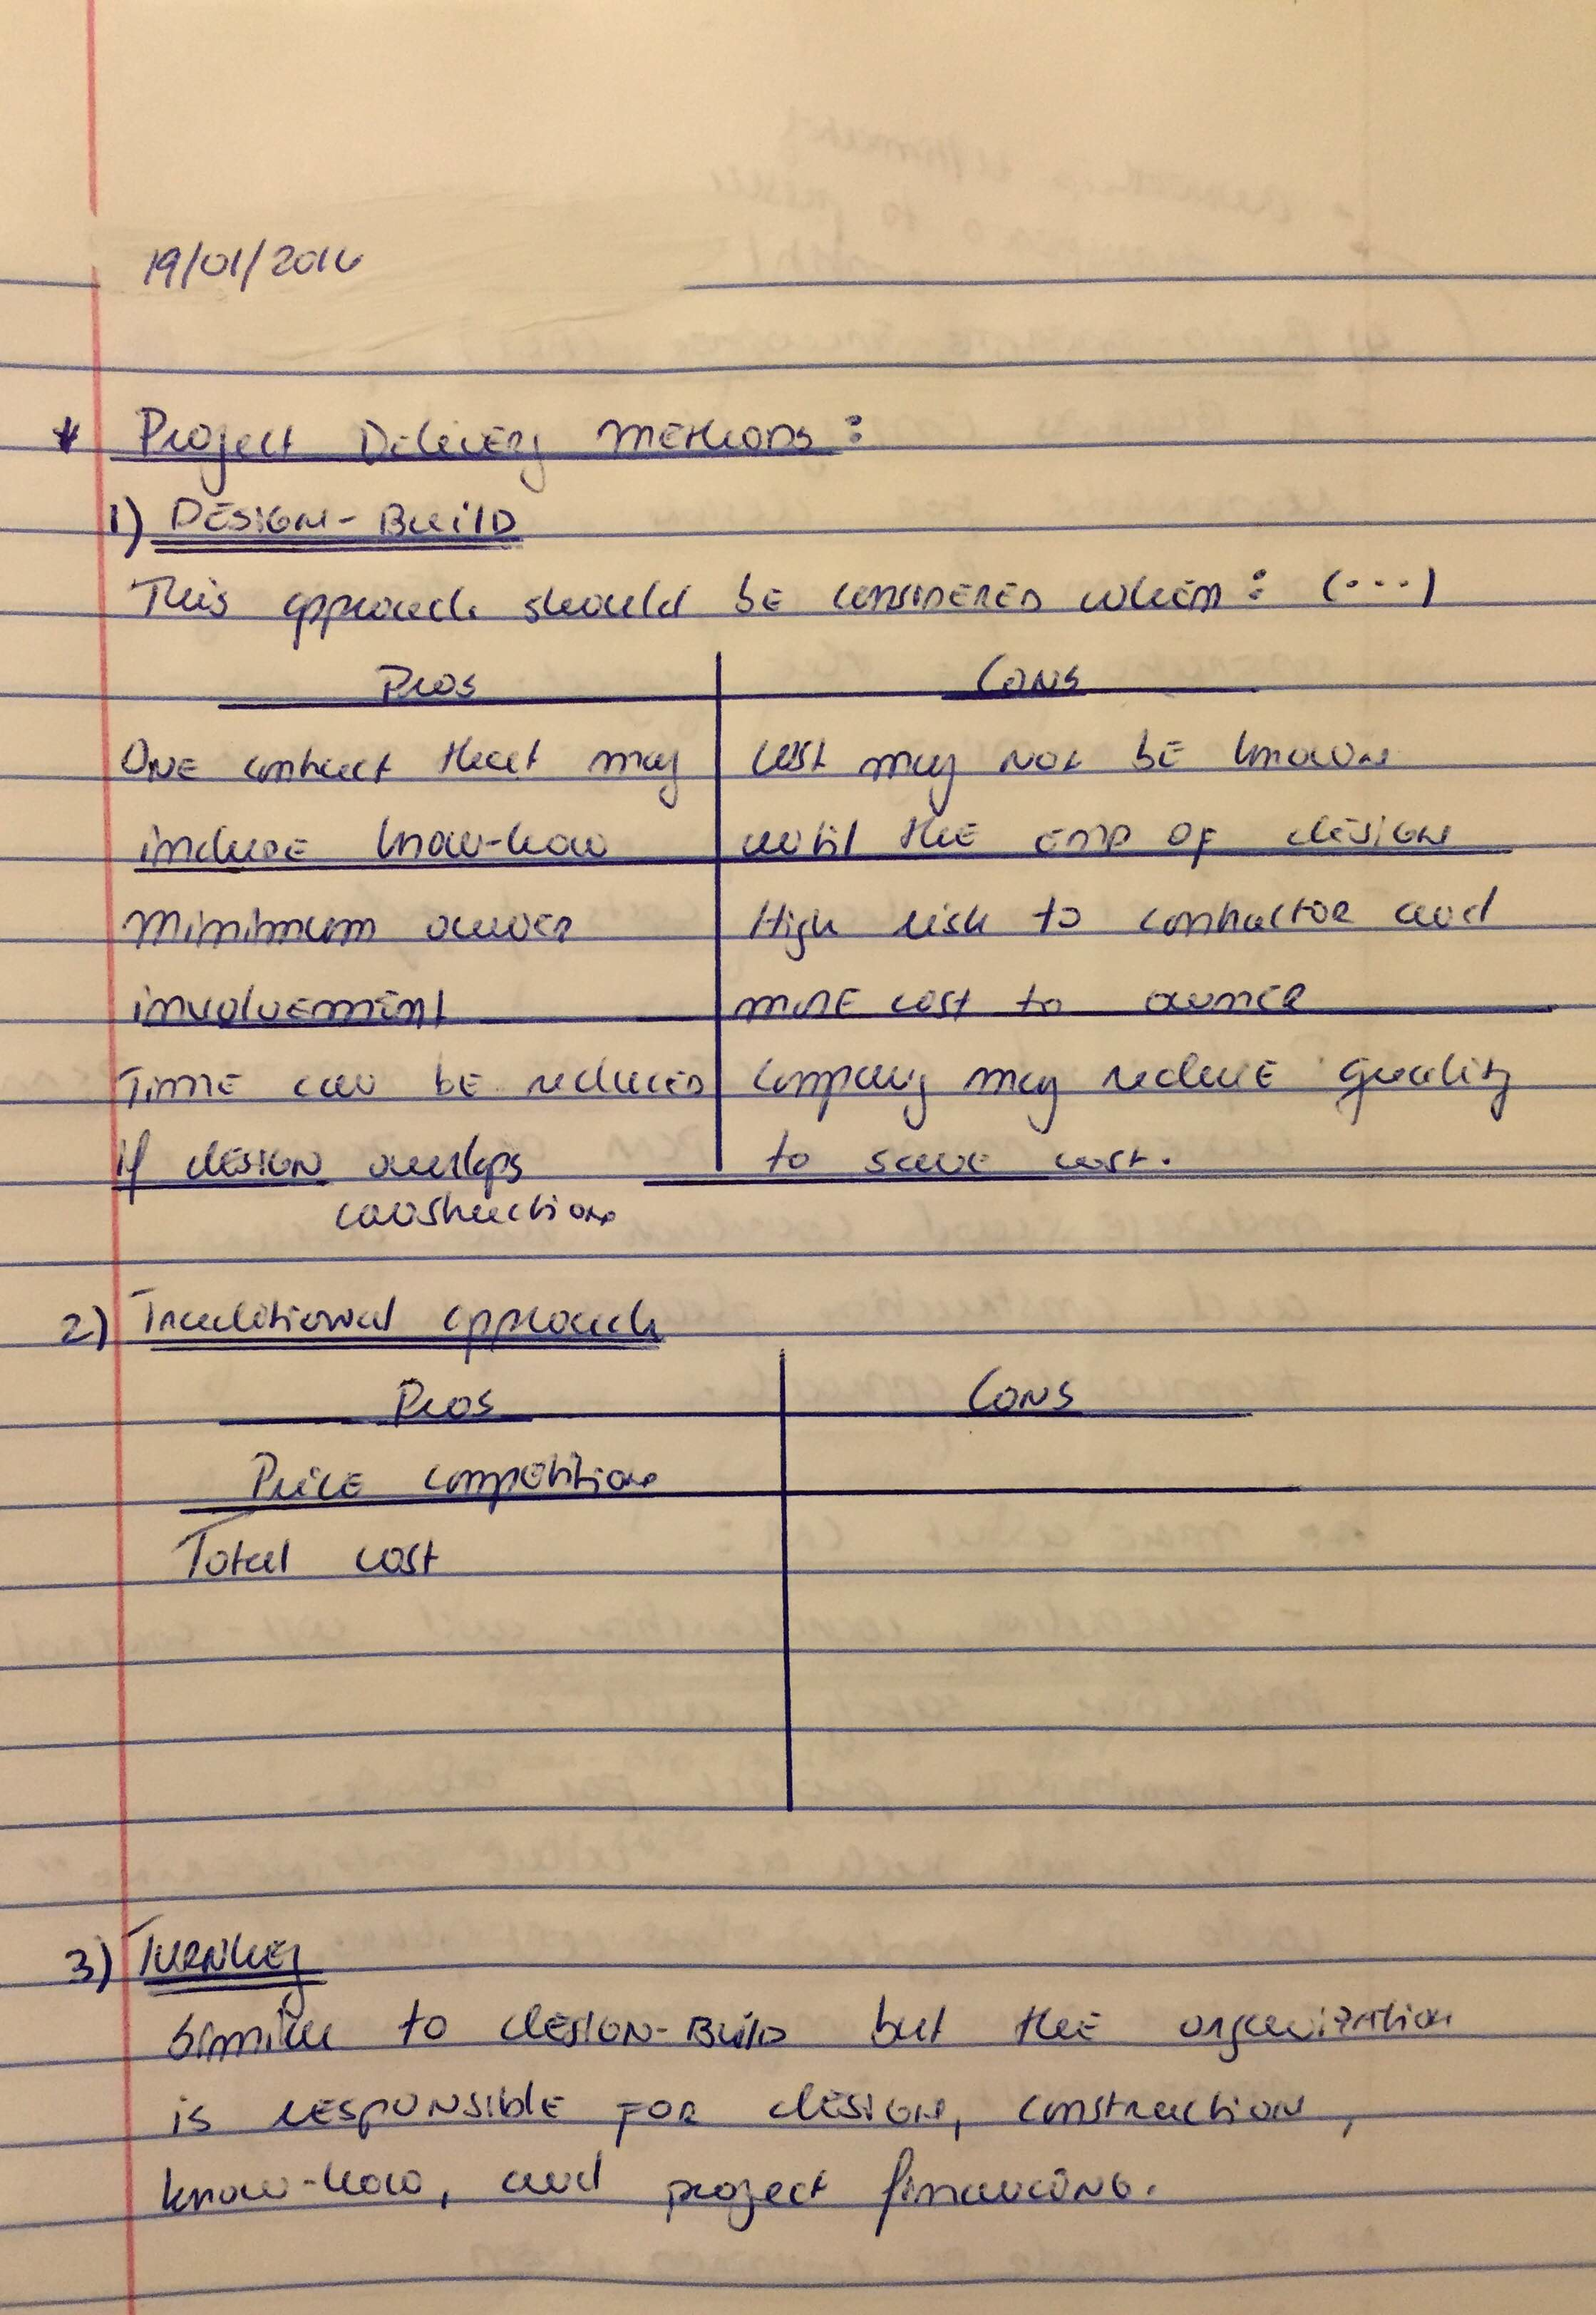 19/01/2016
* Project Delivery methods:
1) Design-Build
This approach should be considered when: (...)
Pros Cons
One contract that may cost may not be known
include know-how until the end of design
Minimum owner High risk to contractor and
involvement more cost to owner
Time can be reduced company may reduce quality
if design overlaps to save cost.
construction
2) Traditional approach
Pros Cons
Price competition
Total cost
3) Turnkey
Similar to design-Build but the organization
is responsible for design, construction,
know-how, and project financing.